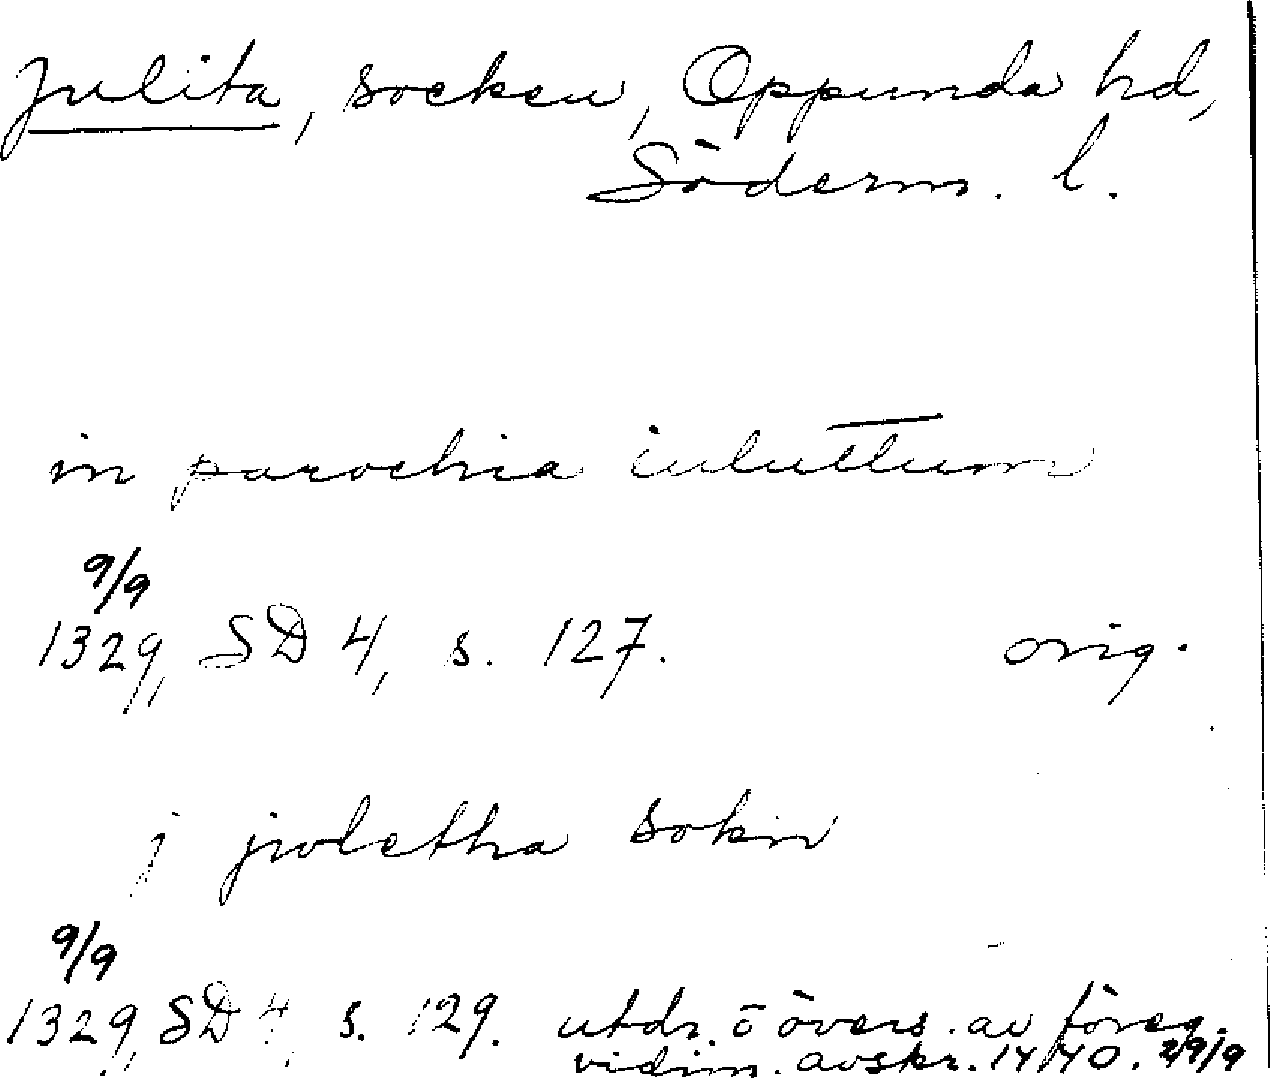 Julita, socken, Oppunda hd,
Söderm. l.
in parochia iuluttum
9/9
1329, SD 4, s. 127. orig.
j juletha sokn
9/9
1329, SD 4, s. 129. utdr. o övers. av föreg.
vidim. avskr. 1440. 29/9